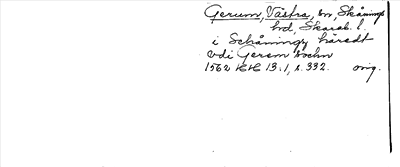 Gerum, Västra, sn, Skånings
hd, Skarab. l.
i Schåningz häredt
vdi Gerem sochn
1562 HH 13:1, s. 332. orig.